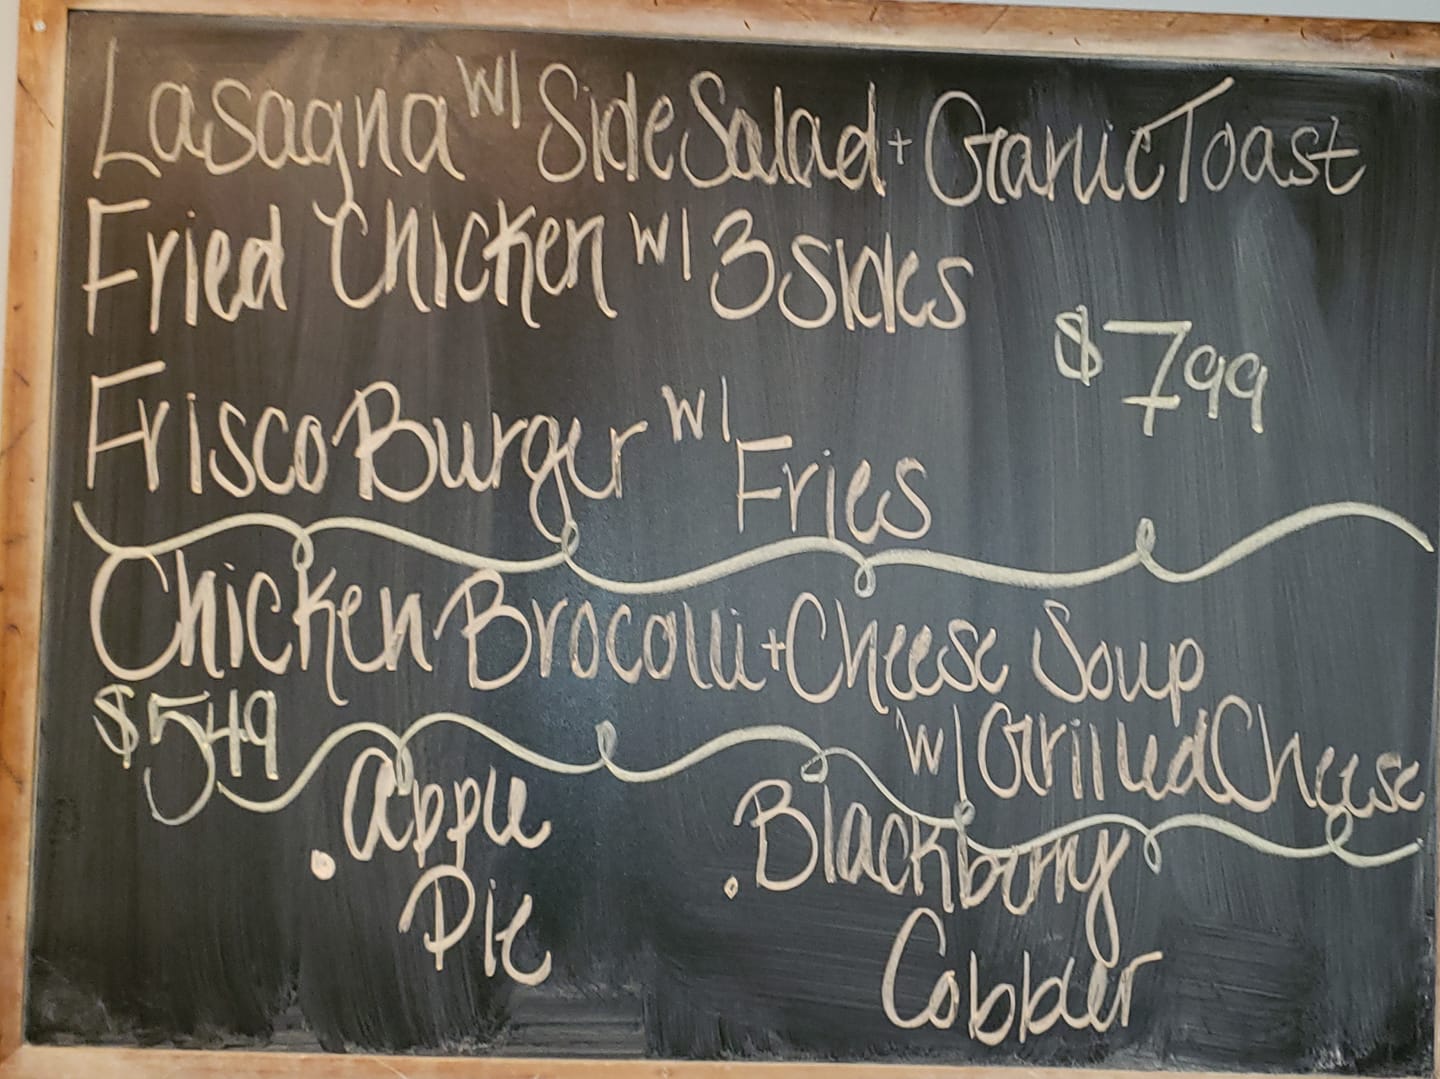 Lasagna w/ Side Salad + Garlic Toast
Fried Chicken w/ 3 sides
$7.99
Frisco Burger w/ Fries
Chicken Brocolli + Cheese Soup
$5.49
w/ Grilled Cheese
. Apple
Pie
. Blackberry
Cobbler